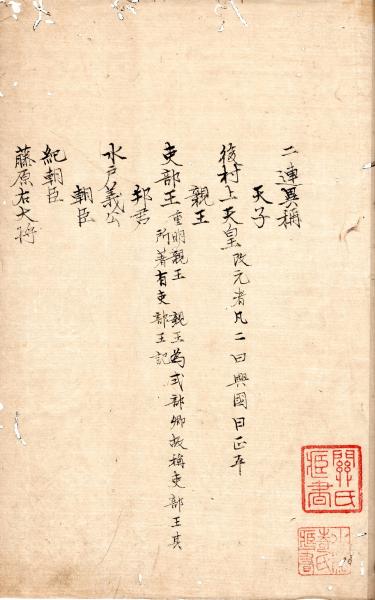 二連異稱
天子
後村上天皇 改元者凡二曰興國曰正平
親王
吏部王 重明親王 親王為式部卿故稱吏部王其
所著有吏部王記
邦君
水戸義公
朝臣
紀朝臣
藤原右大将
關氏
藏書
氏
藏書